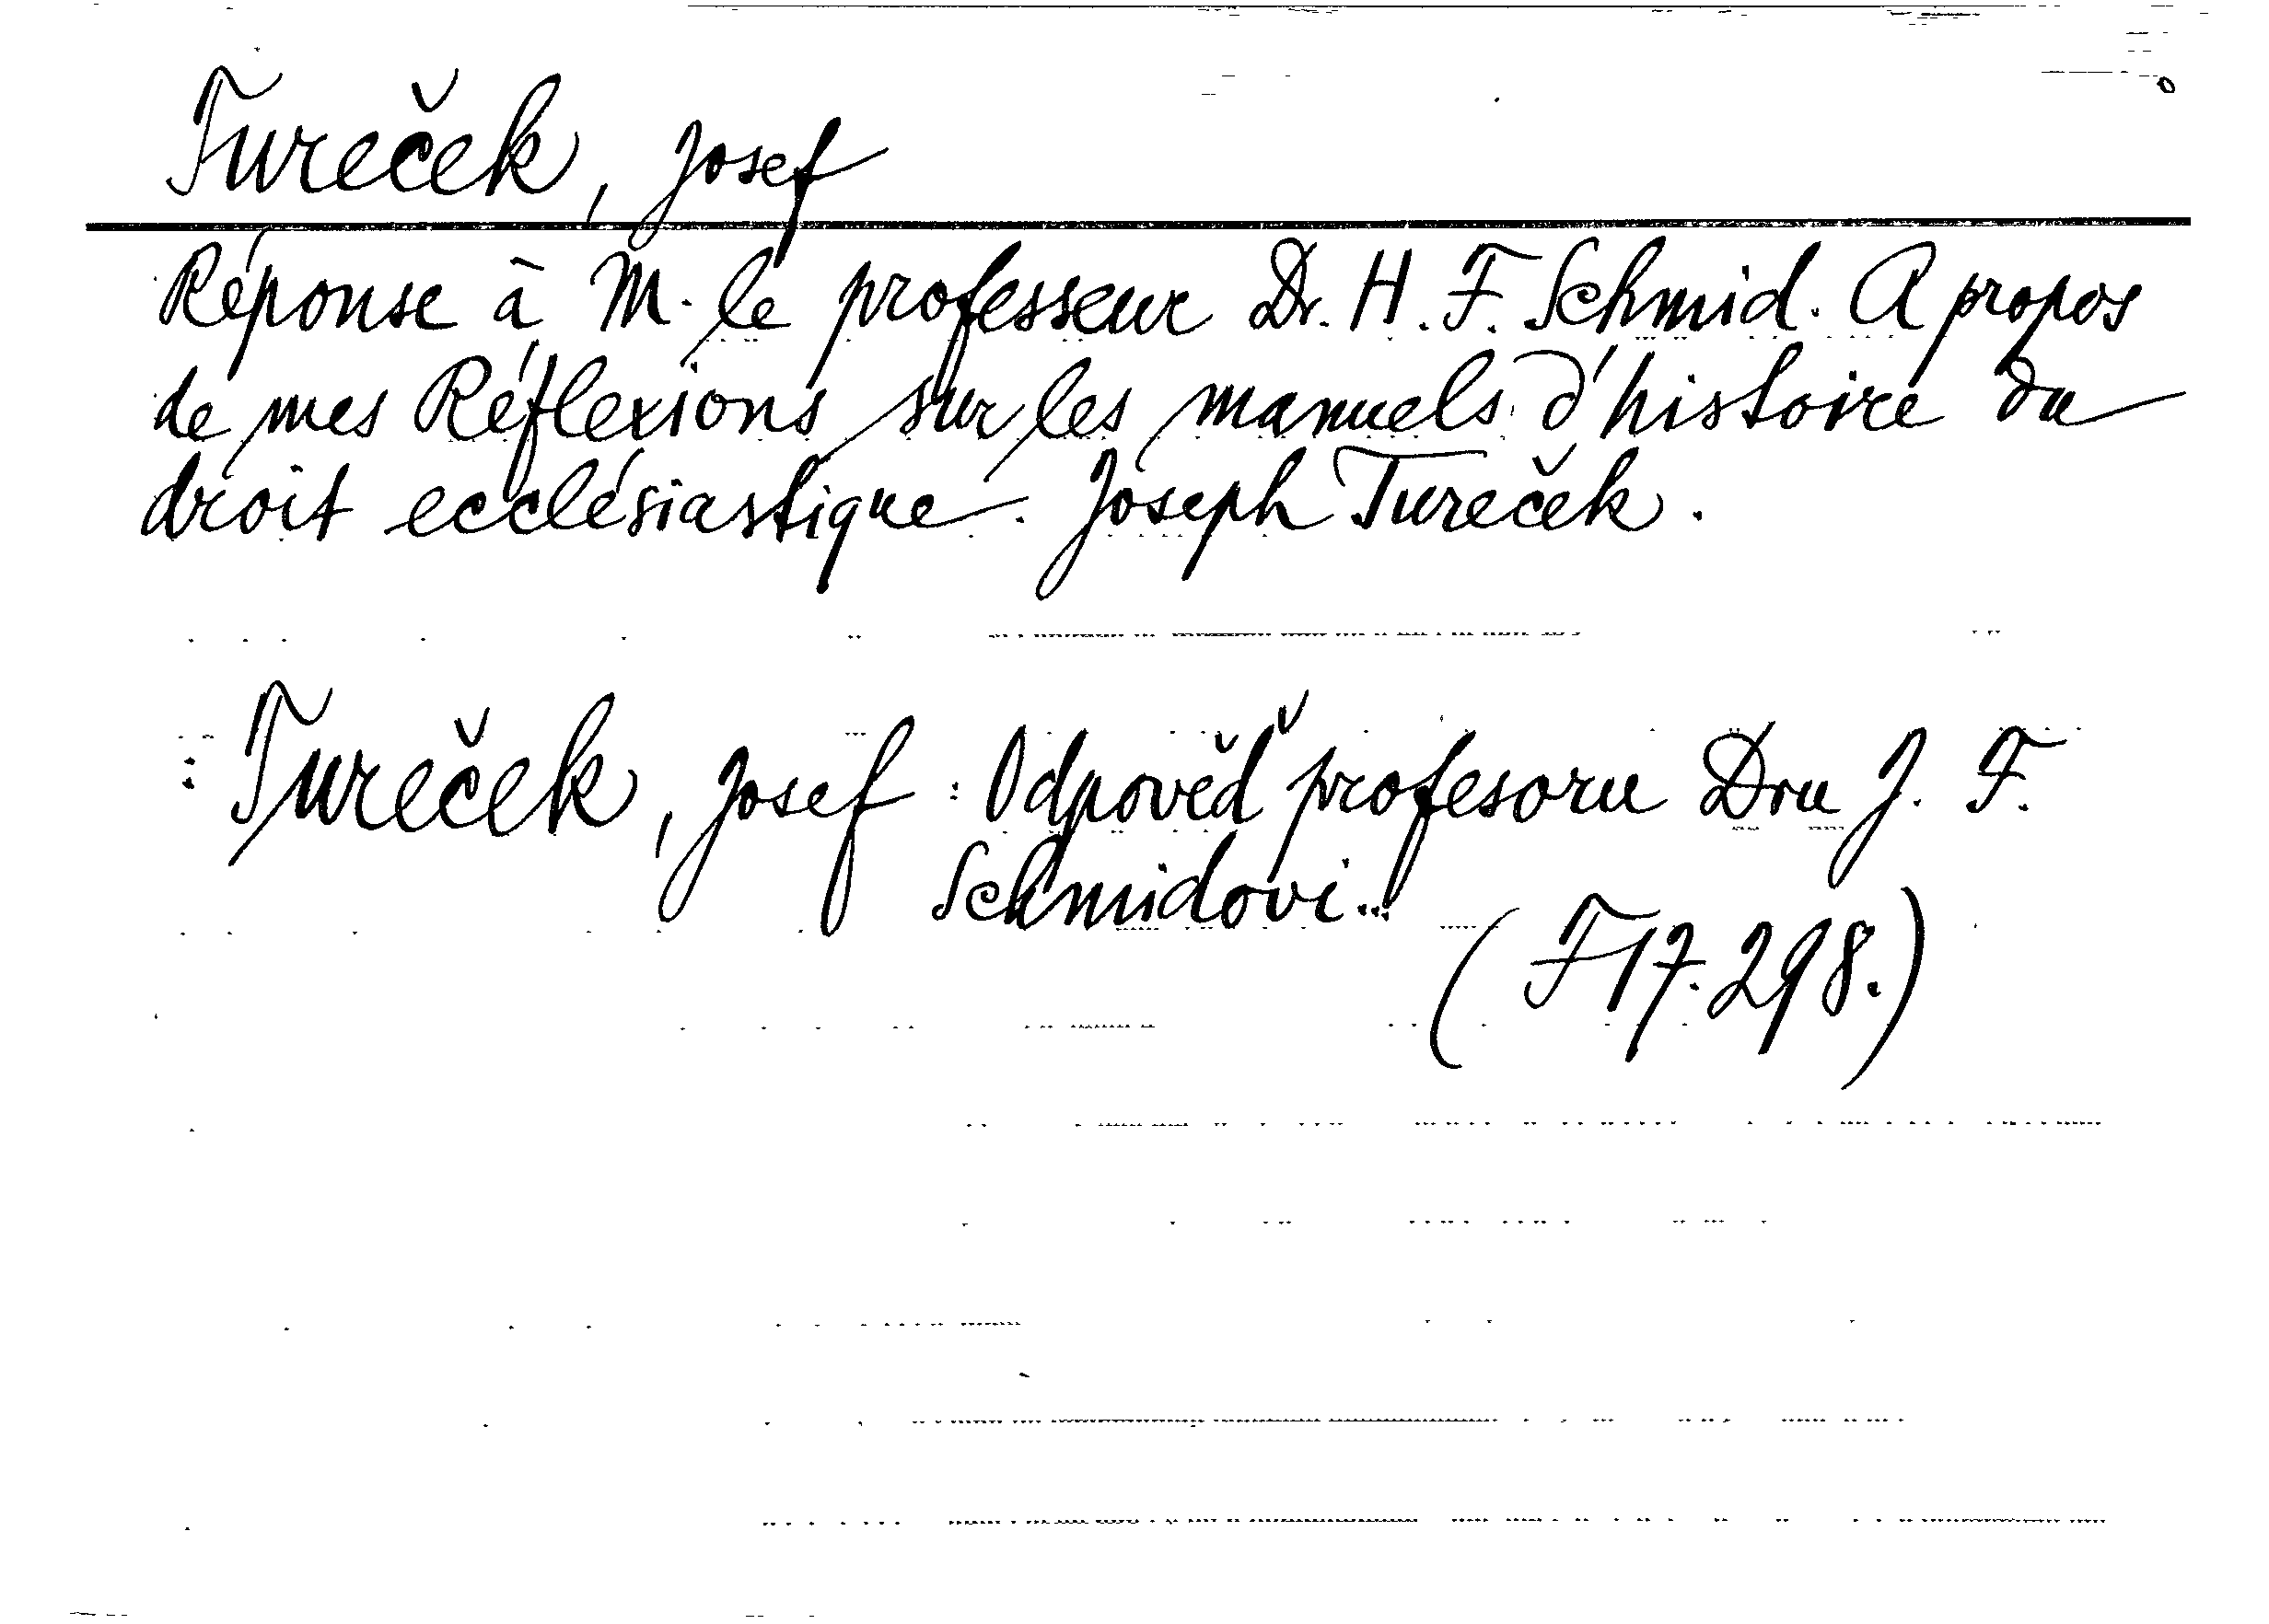 Tureček, Josef
Réponse à M. le professeur Dr. H. F. Schmid. A propos
de mes Réflexions sur les manuels d'histoire du
droit ecclésiastique. Joseph Tureček.
: Tureček, Josef : Odpověď profesoru Dru J. F.
Schmidovi...
(F 17.298.)